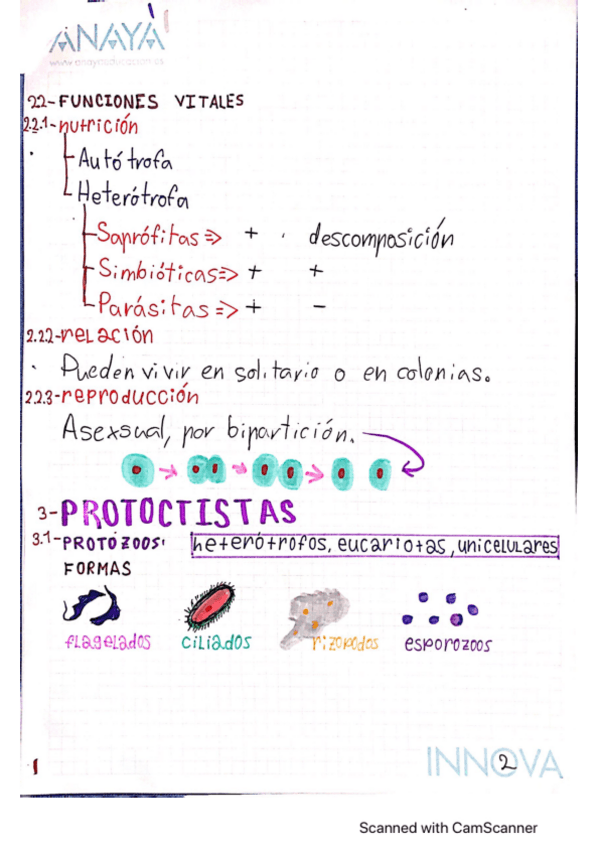 ANAYA
www.anayaeducacion.es
2.2- FUNCIONES VITALES
2.2.1- nutrición
Autótrofa
Heterótrofa
Saprófitas => + · descomposición
Simbióticas => + +
Parásitas => + -
2.2.2- relación
· Pueden vivir en solitario o en colonias.
2.2.3- reproducción
Asexsual, por bipartición.
3- PROTOCTISTAS
3.1- PROTOZOOS: heterótrofos, eucariotas, unicelulares
FORMAS
flagelados ciliados rizopodos esporozoos
1
INNOVA
2
Scanned with CamScanner